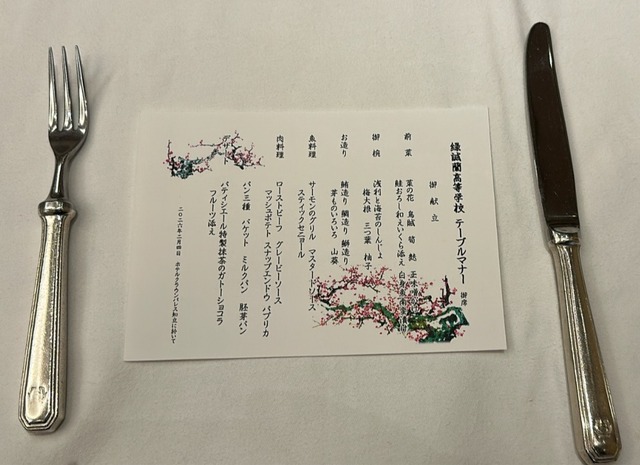 緑誠蘭高等学校 テーブルマナー 御席
御献立
前菜
菜の花 烏賊 筍 麩
鮭おろし和えいくら添え
御椀
浅利と海苔のしんじょ
梅大根 三つ葉 柚子
お造り
鮪造り 鯛造り 鰤造り
芽ものいろいろ 山葵
魚料理
サーモンのグリル マスタードソース
スティックセニョール
肉料理
ローストビーフ グレービーソース
マッシュポテト スナップエンドウ パプリカ
パン三種 バゲット ミルクパン 胚芽パン
デザート
パティシエール特製抹茶のガトーショコラ
フルーツ添え
二〇二六年二月四日 ホテルクラウンパレス知立に於いて